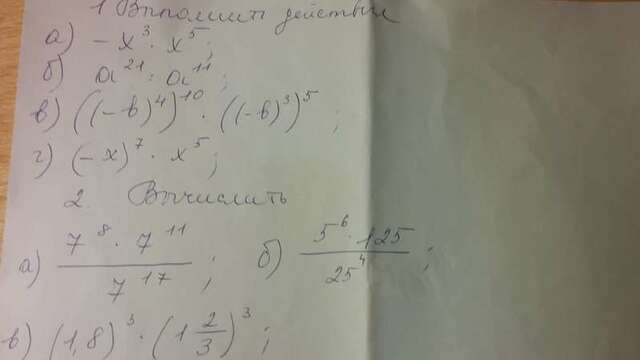 1 Выполнить действия
а) - x³ · x⁵;
б) a²¹ : a¹¹;
в) ((-b)⁴)¹⁰ · ((-b)³)⁵;
г) (-x)⁷ · x⁵;
2. Вычислить
а) (7⁸ · 7¹¹)/7¹⁷; б) (5⁶ · 125)/25⁴;
в) (1,8)³ · (1 2/3)³;